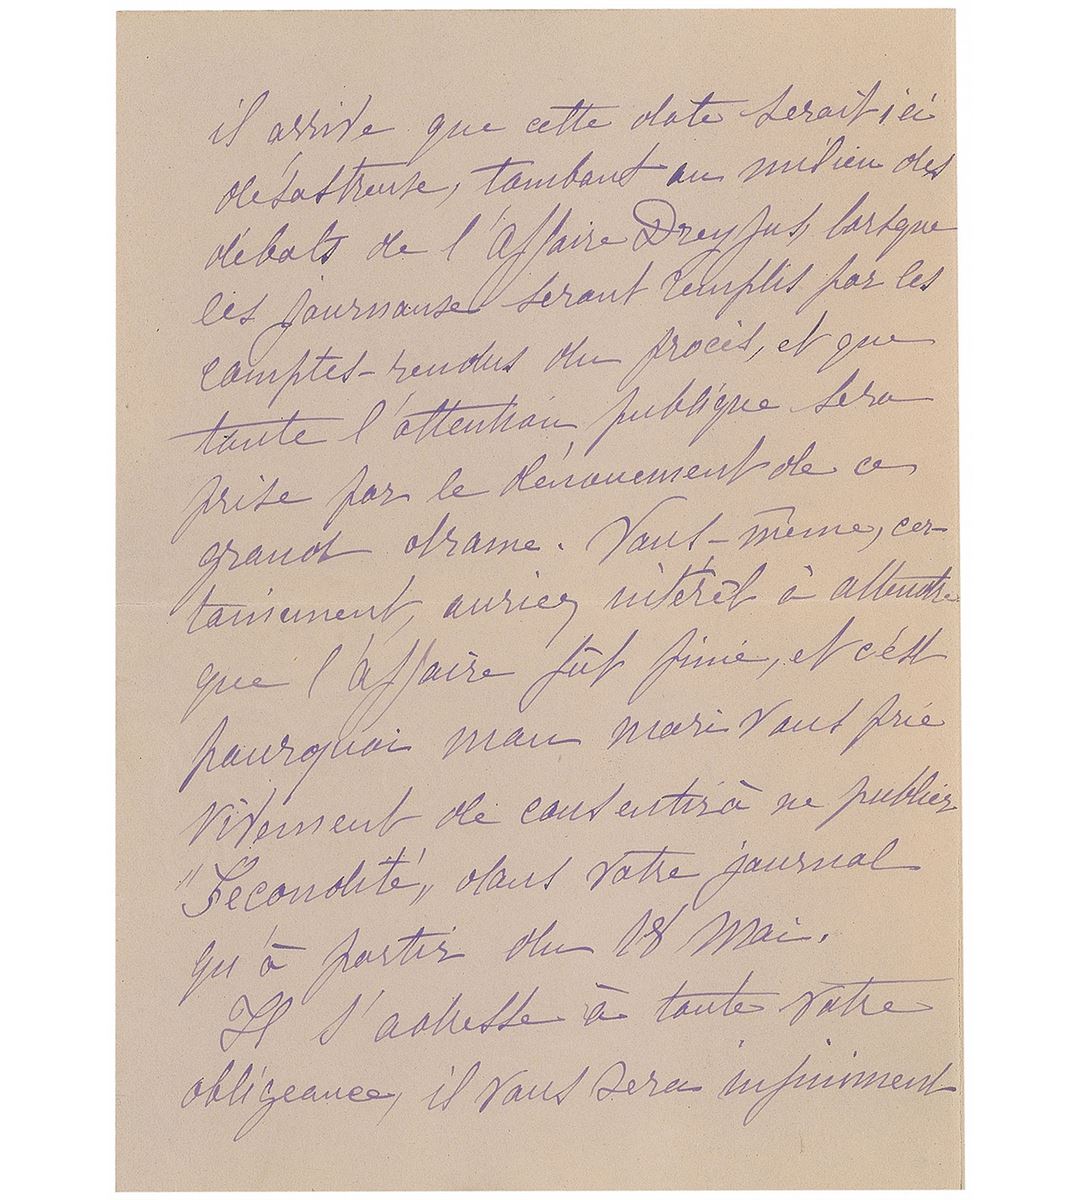 il arrive que cette date serait ici
désastreuse, tombant au milieu des
débats de l'affaire Dreyfus, lorsque
les journaux seront remplis par les
comptes-rendus du procès, et que
toute l'attention publique sera
prise par le dénouement de ce
grand drame. Vous-même, cer-
tainement, auriez intérêt à attendre
que l'affaire fût finie, et c'est
pourquoi mon mari vous prie
vivement de consentir à ne publier
"Fécondité", dans votre journal
qu'à partir du 18 Mai.
Il s'adresse à toute votre
obligeance, il vous sera infiniment